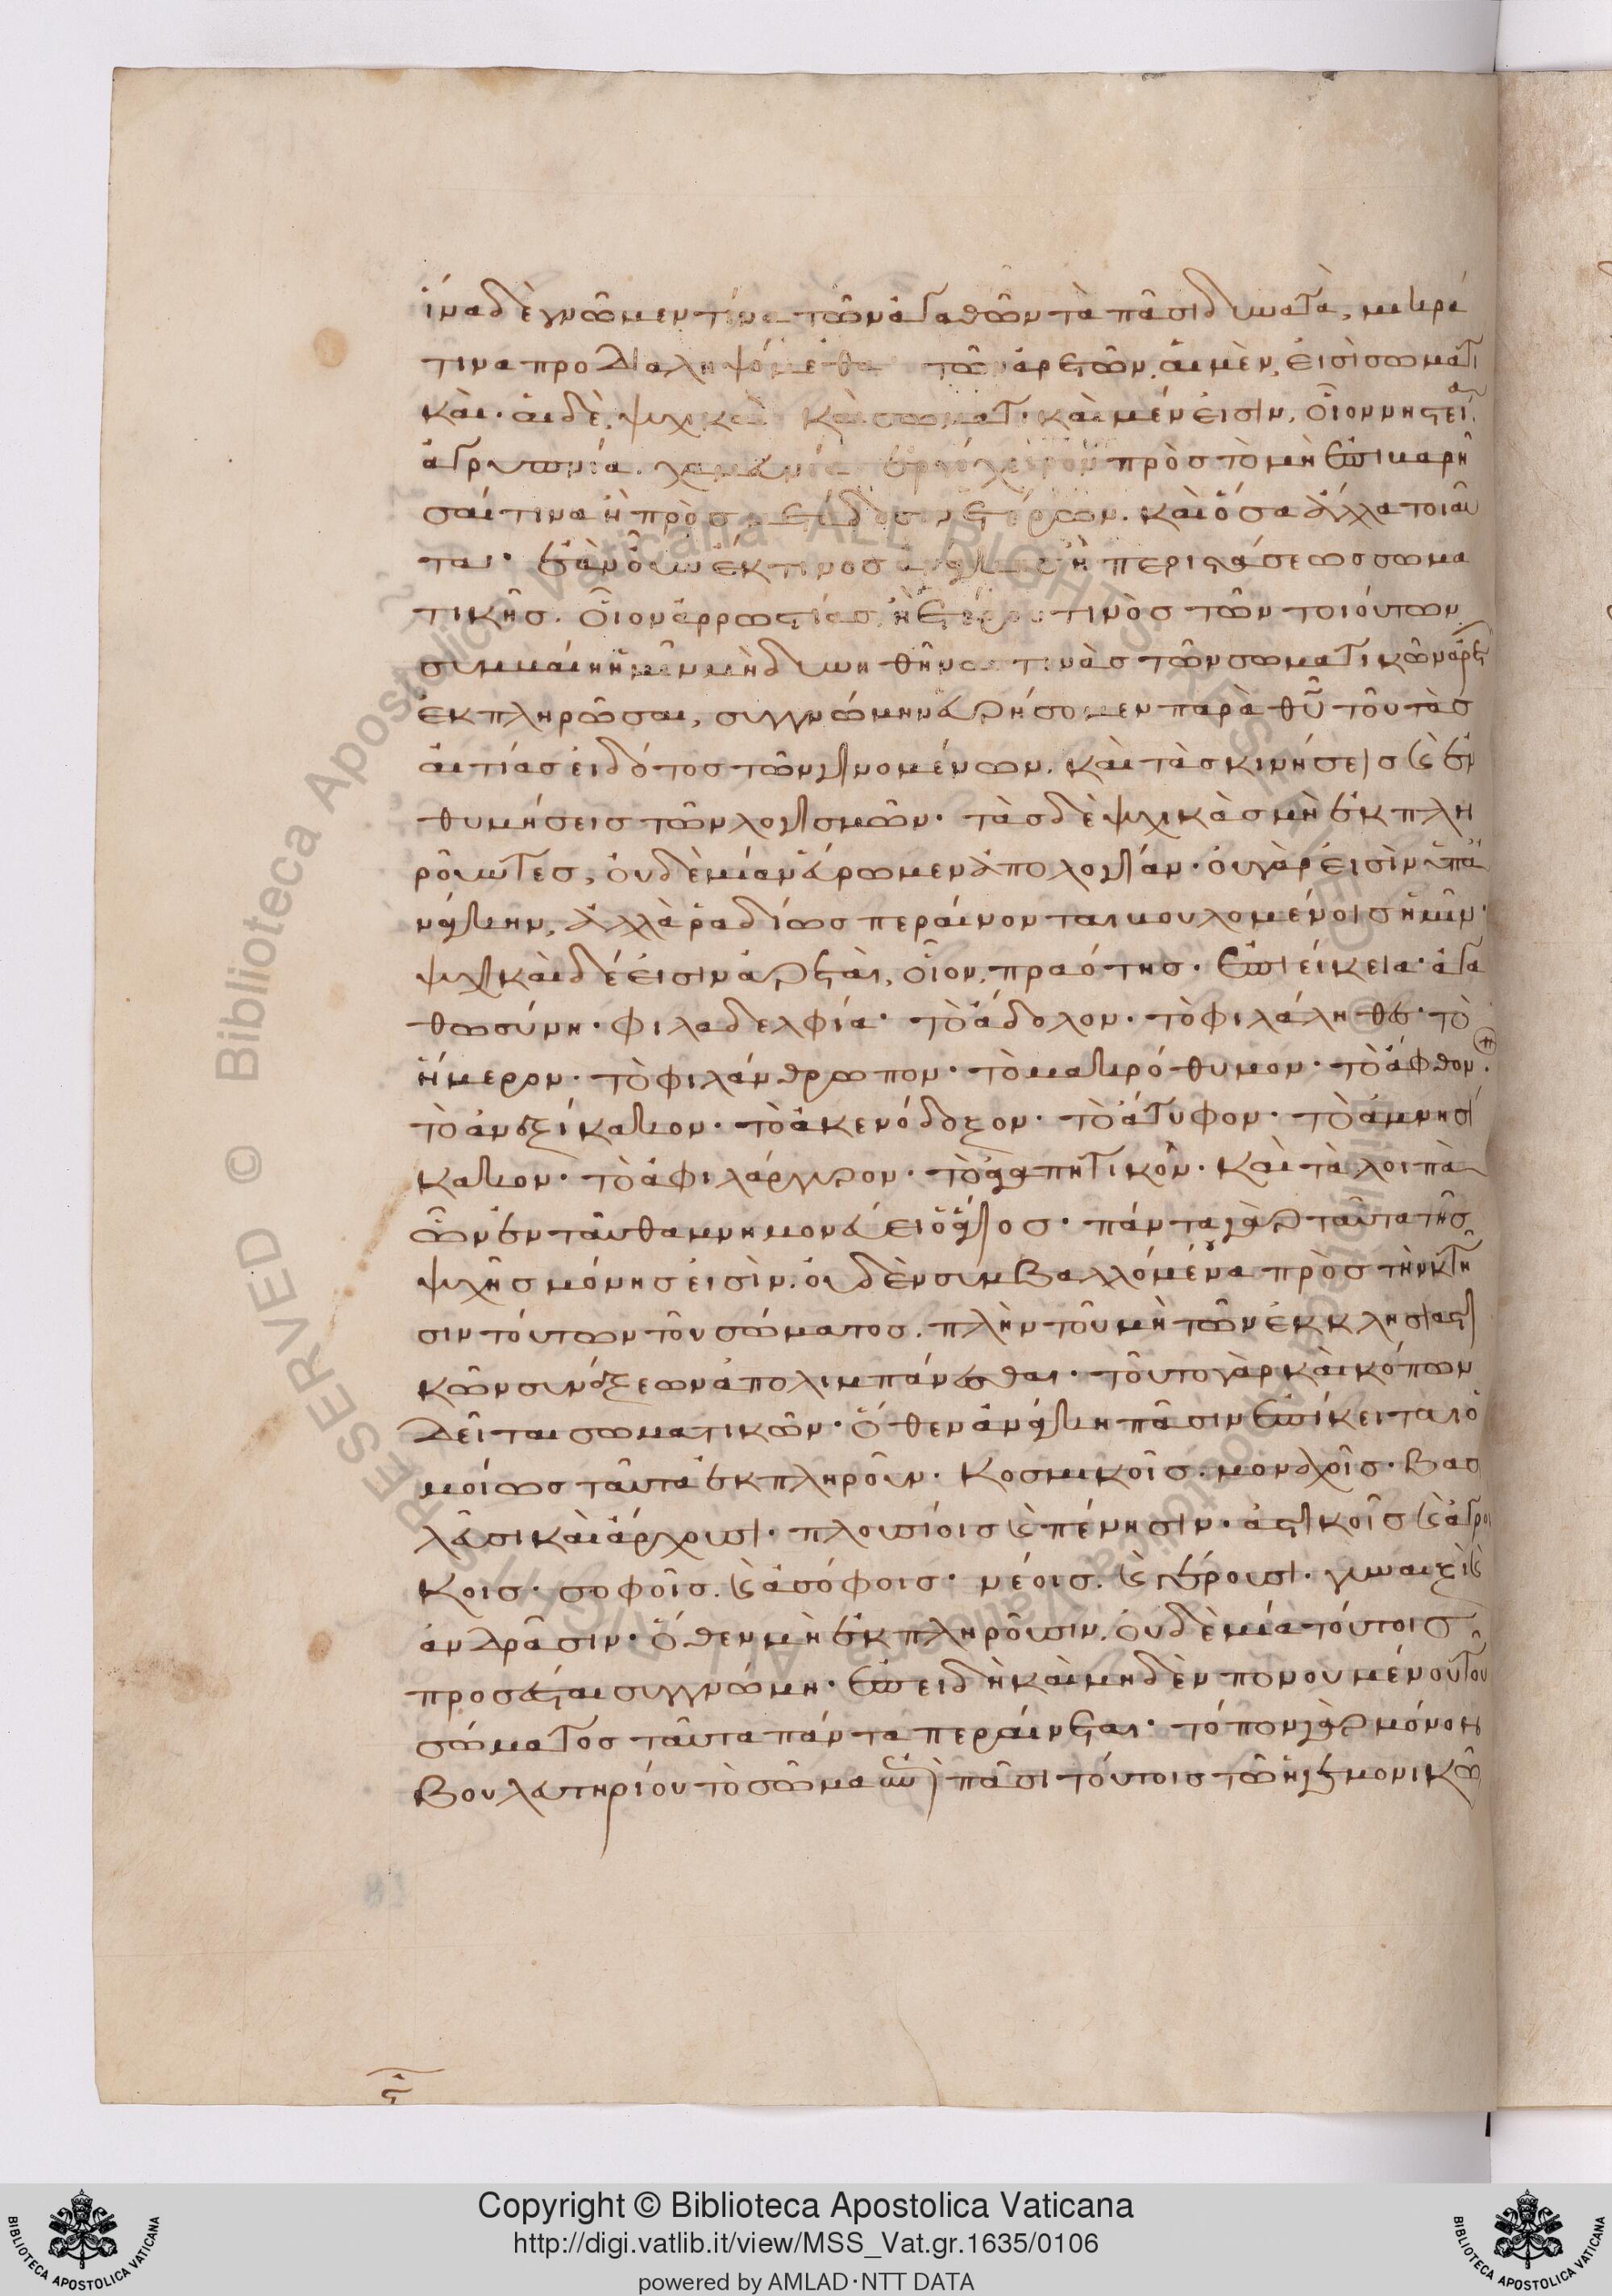 ἵνα δὲ γνῶμεν τίνα τῶν ἀγαθῶν τὰ πᾶσι δυνατά, μικρά
τινα προδιαληψόμεθα τῶν ἀρετῶν, αἱ μὲν, εἰσὶ σωματι
καί· αἱ δὲ, ψυχικαί καὶ σωματικαὶ μέν εἰσιν, οἷον νηστεία
ἀγρυπνία. χαμευνία πρὸς τὸ μὴ ἐπιβαρῆ
σαί τινα ἢ πρὸς μετάδοσιν ἑτέρων. καὶ ὅσα ἄλλα τοιαῦ
τα· ἐὰν οὖν ἔκ τινος ἀνάγκης ἢ περιστάσεως σωμα
τικῆς. οἷον ἀρρωστίας, ἢ ἑτέρου τινὸς τῶν τοιούτων
συμβαίη ἡμῖν μὴ δυνηθῆναι τινὰς τῶν σωματικῶν ἀρετ
ἐκπληρῶσαι, συγγνώμην εὑρήσομεν παρὰ θυ τοῦ τὰς
αἰτίας εἰδότος τῶν γινομένων. καὶ τὰς κινήσεις καὶ ἐν
θυμήσεις τῶν λογισμῶν· τὰς δὲ ψυχικὰς μὴ ἐκπλη
ροῦντες, οὐδὲ μίαν εὕρωμεν ἀπολογίαν· οὐ γάρ εἰσιν ὑπὸ ἀ
νάγκην, ἀλλὰ ῥαδίως περαίνονται βουλομένοις ἡμῖν·
ψυχικαὶ δέ εἰσιν ἀρεταί, οἷον, πραότης· ἐπιείκεια· ἀγα
θωσύνη· φιλαδελφία· τὸ ἄδολον· τὸ φιλάληθες· τὸ
ἥμερον· τὸ φιλάνθρωπον· τὸ μακρόθυμον· τὸ ἄφθον.
τὸ ἀνεξίκακον· τὸ ἀκενόδοξον· τὸ ἄτυφον· τὸ ἀμνησί
κακον· τὸ ἀφιλάργυρον· τὸ ἀγαπητικόν· καὶ τὰ λοιπὰ
ὧν ἐνταῦθα μνημονεύει ὁ ἅγιος· πάντα γὰρ ταῦτα τῆς
ψυχῆς μόνης εἰσὶν. οὐδὲν συμβαλλόμενα πρὸς τὴν κτῆ
σιν τούτων τοῦ σώματος. πλὴν τοῦ μὴ τῶν ἐκκλησιαστι
κῶν συνάξεων ἀπολιμπάνεσθαι· τοῦτο γὰρ καὶ κόπων
δεῖται σωματικῶν· ὅθεν ἀνάγκη πᾶσιν ἐπίκειται ὁ
μοίως ταῦτα ἐκπληροῦν. κοσμικοῖς. μοναχοῖς. βασι
λεῦσι καὶ ἄρχουσι· πλουσίοις καὶ πένησιν· ἀστικοῖς καὶ ἀγροι
κοις· σοφοῖς. καὶ ἀσόφοις· νέοις. καὶ γέρουσι. γυναιξὶ καὶ
ἀνδράσιν· ὅθεν μὴ ἐκπληροῦσιν. οὐδὲ μία τούτοις
προσέσται συγγνώμη· ἐπειδὴ καὶ μηδὲν πονουμένου τοῦ
σώματος ταῦτα πάντα περαίνεται· τόπον γὰρ μόνον
βουλευτηρίου τὸ σῶμα ἐν πᾶσι τούτοις τῶ ἡγεμονικῶ